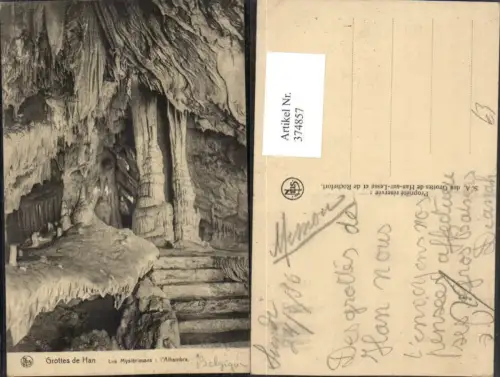 Grottes de Han
Les Mystérieuses : l'Alhambra
Belgique
Artikel Nr.
374857
63
Propriété réservée :
S. A. des Grottes de Han-sur-Lesse et de Rochefort.
NELS
Des grottes de
Han nous
t'envoyons nos
pensées affectueuses
gros baisers